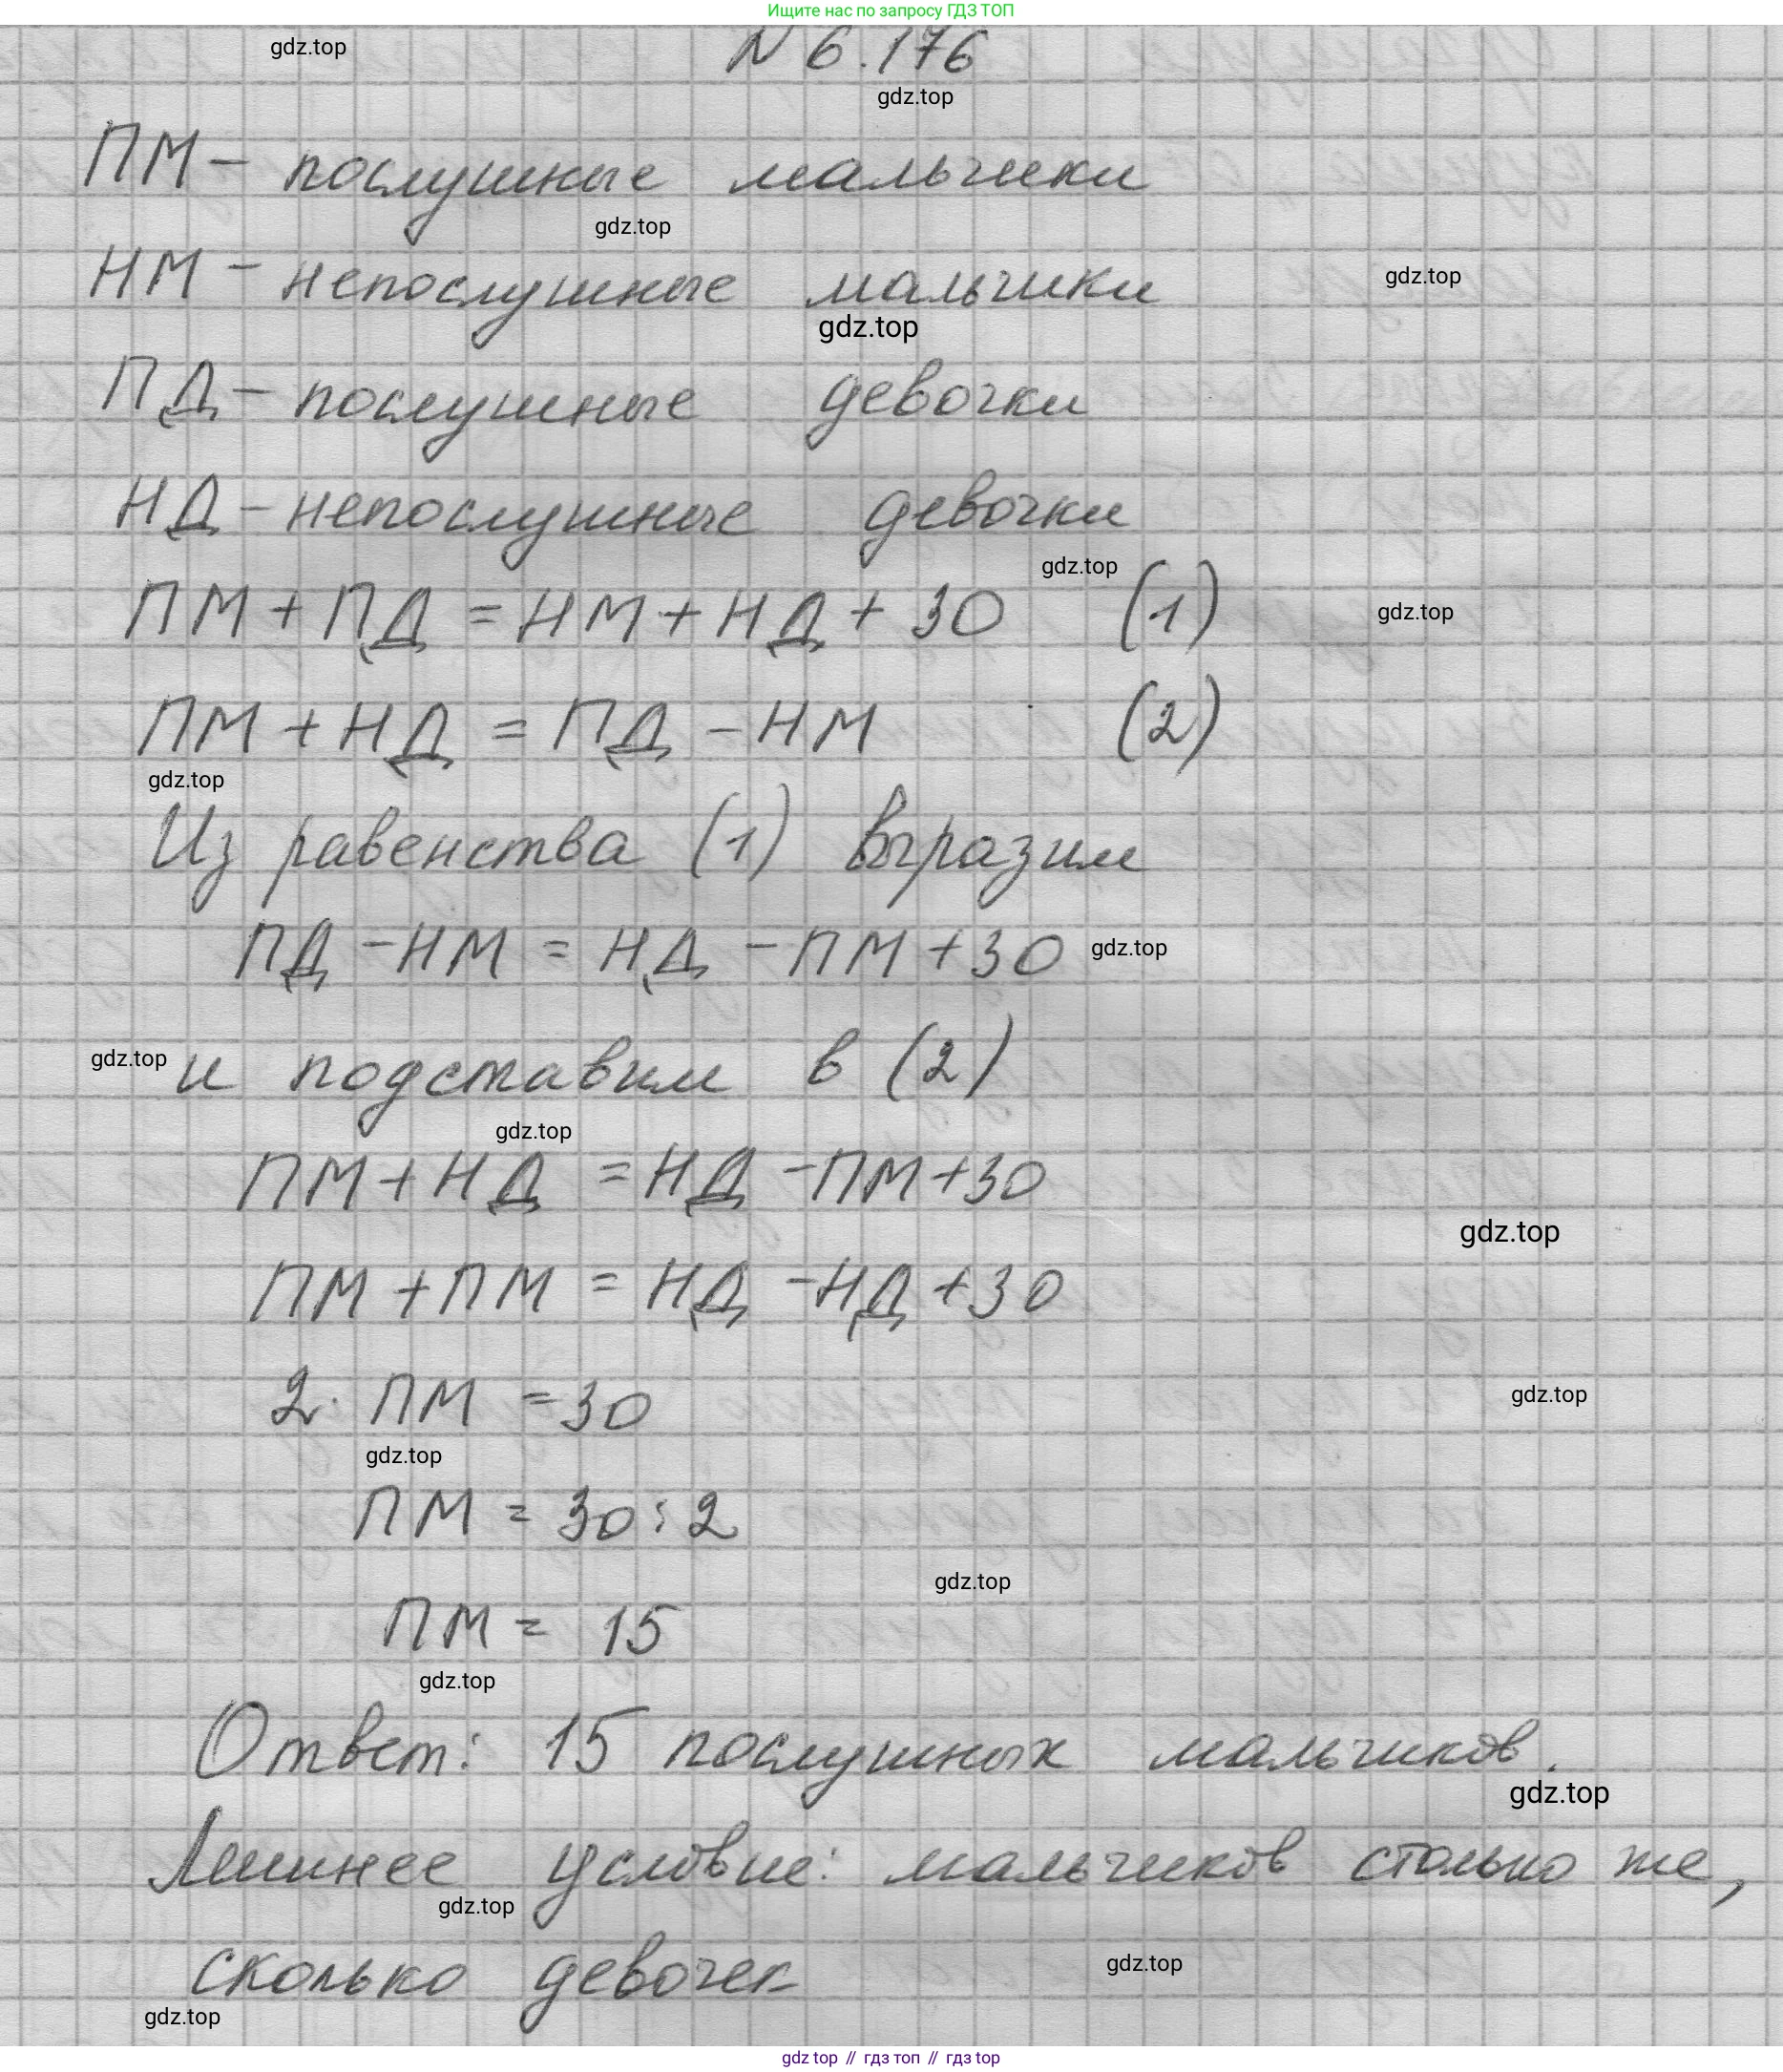 Ищите нас по запросу ГДЗ ТОП
N 6.176
gdz.top
gdz.top
ПМ - послушные мальчики
gdz.top
НМ - непослушные мальчики
gdz.top
gdz.top
ПД - послушные девочки
НД - непослушные девочки
gdz.top
ПМ + ПД = НМ + НД + 30 (1)
gdz.top
ПМ + НД = ПД - НМ (2)
gdz.top
Из равенства (1) выразим
ПД - НМ = НД - ПМ + 30
gdz.top
gdz.top
и подставим в (2)
gdz.top
ПМ + НД = НД - ПМ + 30
gdz.top
ПМ + ПМ = НД - НД + 30
2. ПМ = 30
gdz.top
gdz.top
ПМ = 30 : 2
gdz.top
ПМ = 15
gdz.top
Ответ: 15 послушных мальчиков.
gdz.top
Лишнее условие: мальчиков столько же,
gdz.top
сколько девочек
gdz.top
gdz.top
gdz top // гдз топ // гдз top